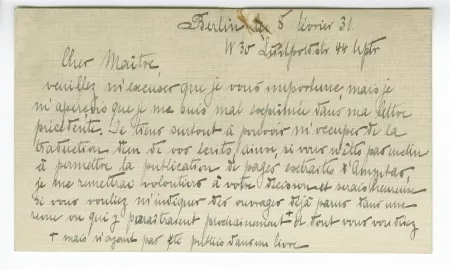 Berlin le 8 février 31.
W 30 Luitpoldstr 44 Gptr
Cher Maître
veuillez m'excuser que je vous importune mais je
m'aperçois que je me suis mal exprimée dans ma lettre
précédente. Je tiens surtout à pouvoir m'occuper de la
traduction d'un de vos écrits, ainsi, si vous n'êtes pas enclin
à permettre la publication de pages extraites d'
je me remettrai volontiers à votre décision et serais heureuse
si vous vouliez m'indiquer des ouvrages déjà parus dans une
revue ou qui y paraîtraient prochainement + et dont vous voudriez
+ mais n'ayant pas été publiés dans un livre